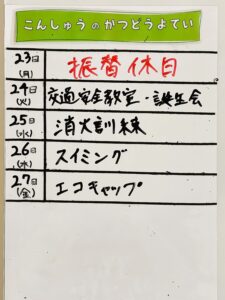 こんしゅうのかつどうよてい
23日(月) 振替休日
24日(火) 交通安全教室・誕生会
25日(水) 消火訓練
26日(木) スイミング
27日(金) エコキャップ